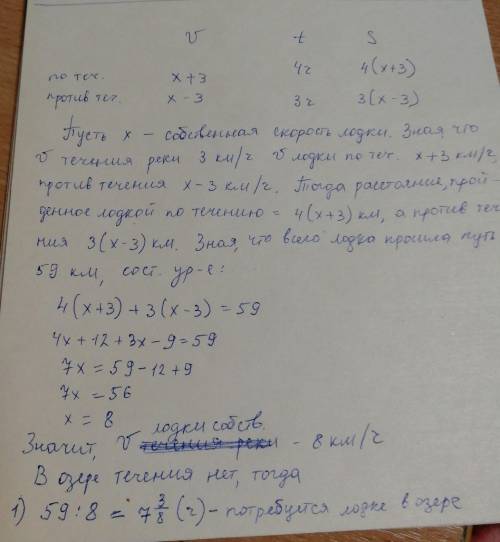 V t S
по теч. x+3 4ч 4(x+3)
против теч. x-3 3ч 3(x-3)
Пусть x - собственная скорость лодки. Зная, что
V течения реки 3 км/ч V лодки по теч. x+3 км/ч,
против течения x-3 км/ч. Тогда расстояние, прой-
денное лодкой по течению = 4(x+3) км, а против тече
ния 3(x-3) км. Зная, что всего лодка прошла путь
59 км, сост. ур-е:
4(x+3)+3(x-3)=59
4x+12+3x-9=59
7x=59-12+9
7x=56
x=8
лодки собств.
Значит, V течения реки - 8 км/ч
В озере течения нет, тогда
1) 59:8=7 3/8 (ч) - потребуется лодке в озере